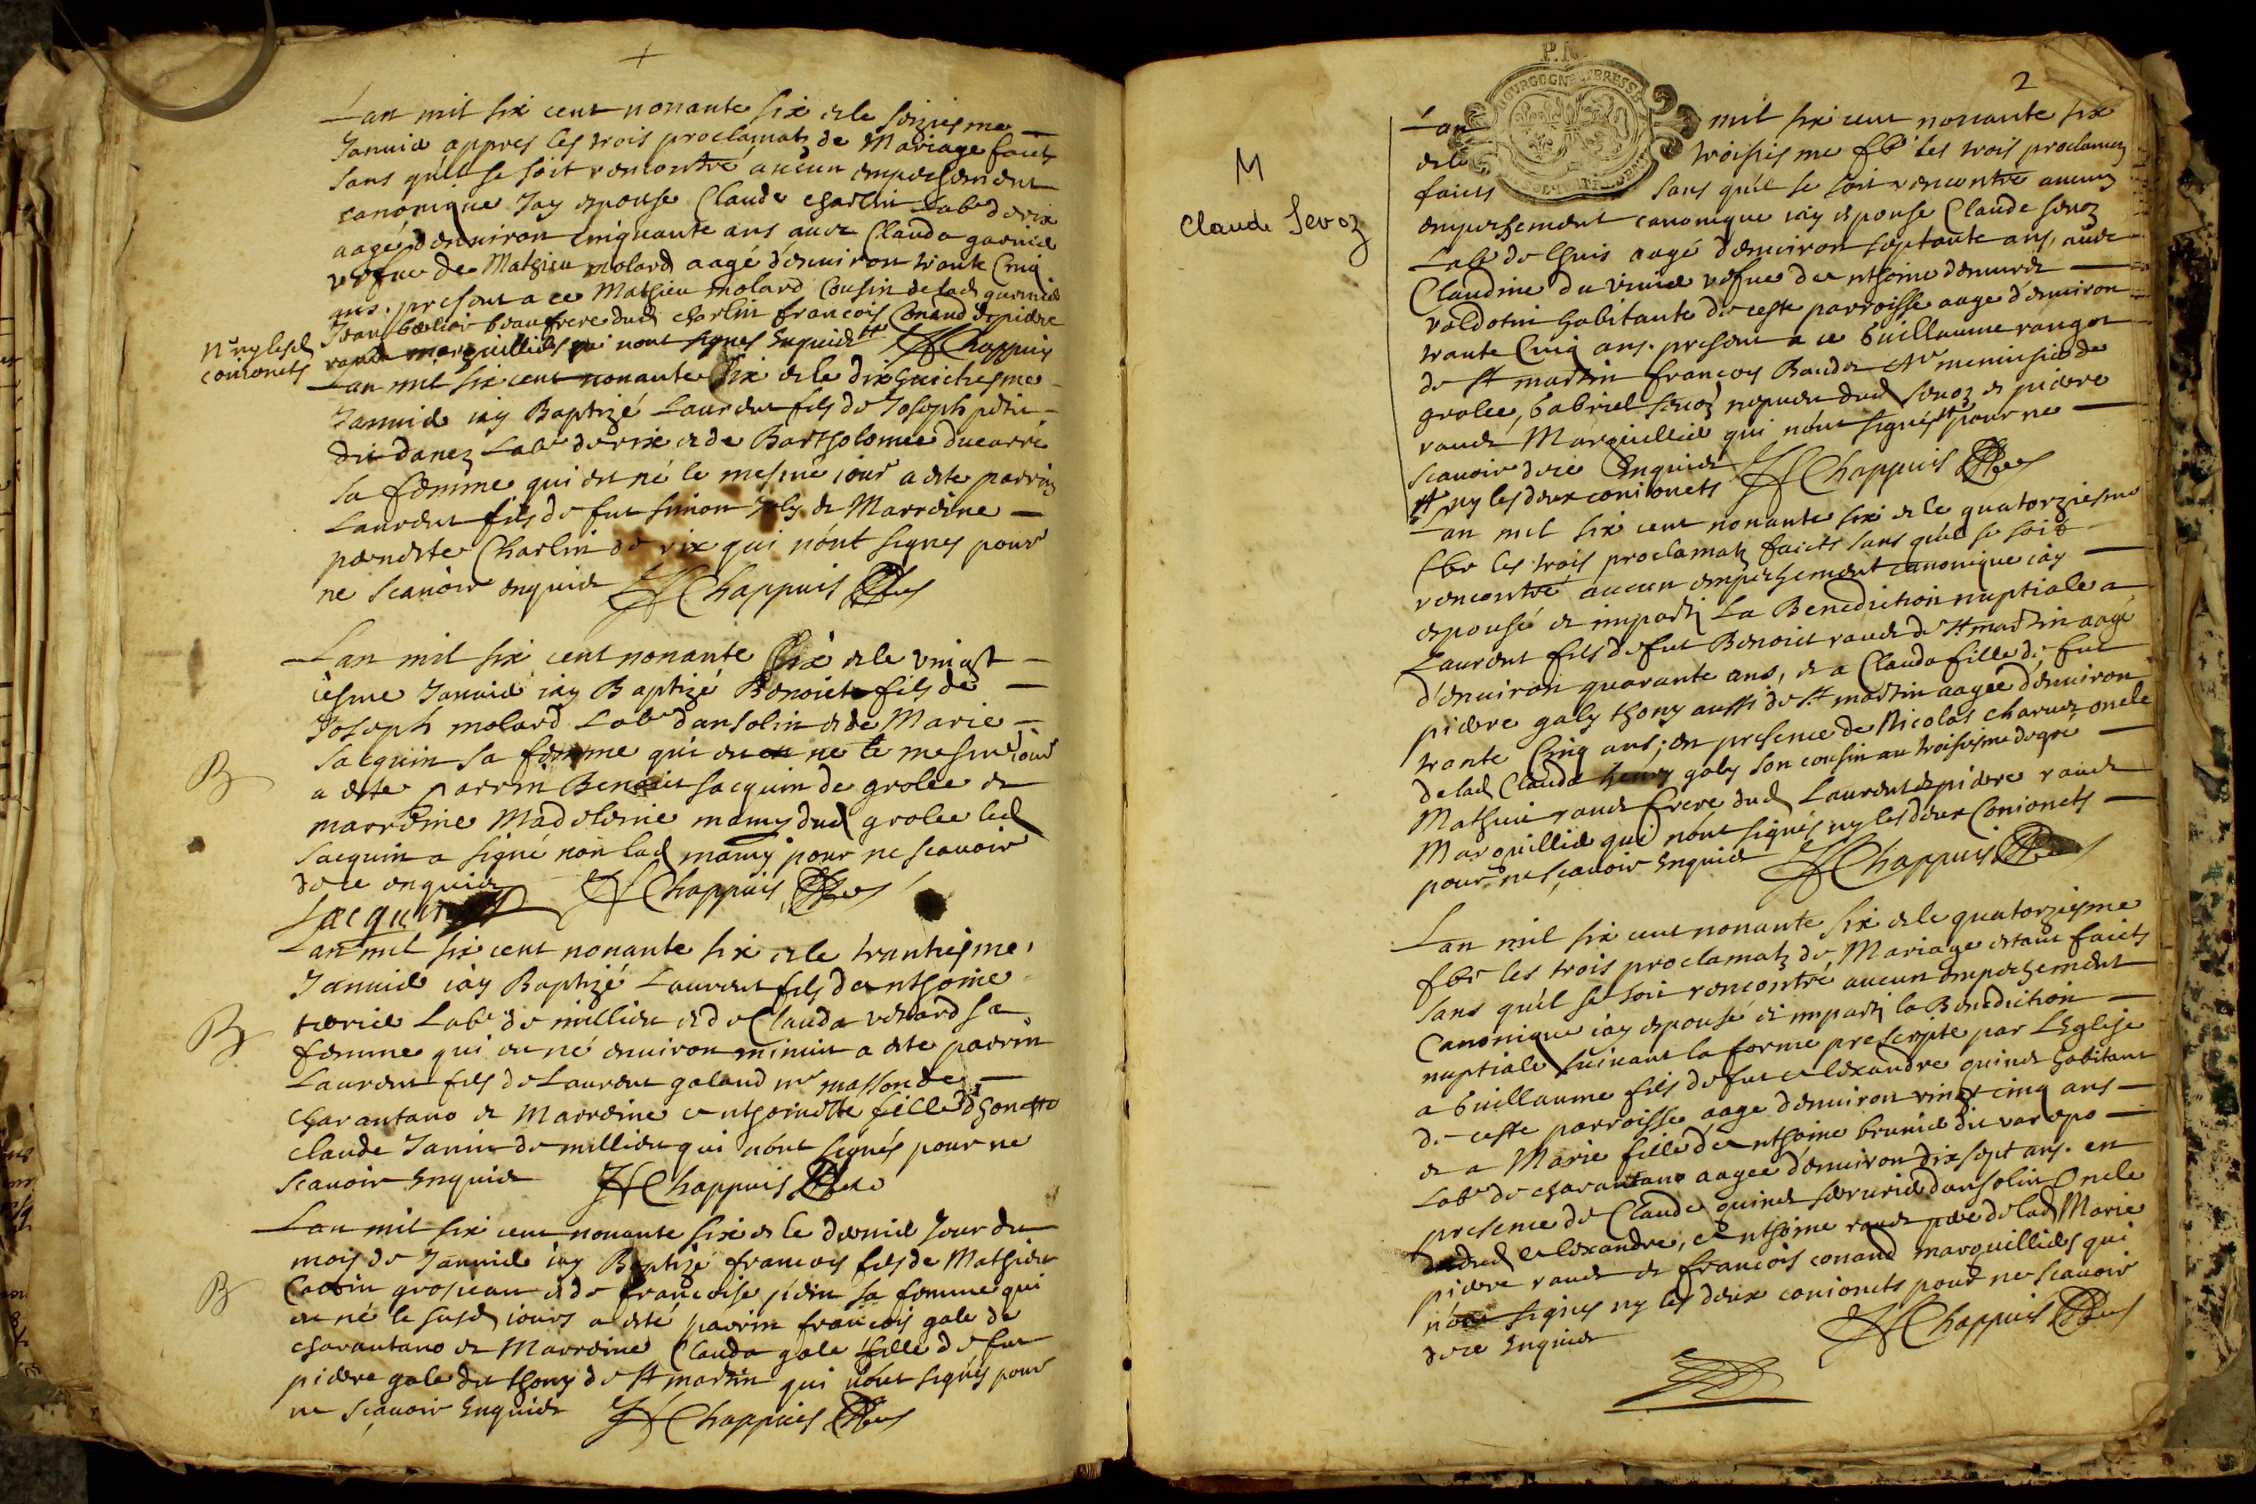 Lan mil six cent nonante six et le seiziesme
Januier appres les trois proclamatz de Mariage faicts
sans qu'il se soit rencontré aucun empeschement
canonique Jay espouse Claude charlin Labr de rix
aagé denuiron cinquante ans auec Clauda garnier
vefue de Mathieu molard aagé d'enuiron trante Cinq
ans. present a ce Mathieu molard Cousin de lad garnier
Jean beaufrere dud charlin francois Conand et pierre
raude marguilliers qui nont signes Enquis JChappuis
ny lesd
conionets
Lan mil six cent nonante Six et le dix huictiesme
Januier iay Baptizé Laurent fils de Joseph petit
dit danez Labr de rix et de Bartholomee ducarre
sa femme qui est né le mesme iour a este parrin
Laurent fils de fut simon Joly et Marreine
pernette Charlin de rix qui n'ont signes pour
ne scauoir enquis JChappuis
Lan mil six cent nonante Six et le vingt
iesme Januier iay Baptizé Benoict fils de
Joseph molard Labr dansolin et de Marie
B
Jacquin sa femme qui est ne le mesme iour
a este parrin Benoict Jacquin de grolee et
marreine Madeleine mamy dud grolee led
Jacquin a signé non lad mamy pour ne scauoir
de ce enquis JChappuis
Jacquin
Lan mil six cent nonante six et le trantiesme
Januier iay Baptizé Laurent fils danthoine
B
Labr de millieu et de Clauda renard sa
femme qui est né enuiron minuit a este parrin
Laurent fils de Laurent galand mr masson de
charantano et Marreine anthoinette fille d'honette
Claude Janin de millieu qui n'ont signés pour ne
scauoir Enquis JChappuis
Lan mil six cent nonante six et le dernier Jour du
mois de Januier iay Baptizé francois fils de Mathieu
B
grosjean et de francoise sa femme qui
est né le susd iours a esté parrin francois gale de
charantano et Marreine Clauda gale fille de fut
pierre gale dit thony de st martin qui n'ont signés pour
ne scauoir Enquis JChappuis
2
BOURGOGNE BRESSE
M
Claude Sevoz
Lan mil six cent nonante six
et le troisiesme feb les trois proclamatz
faicts sans qu'il se soit rencontre aucun
empeschement canonique iay espouse Claude seuoz
Labr de Lhuis aagé d'enuiron septante ans, auec
Claudine du viuier vefue de anthoine
habitante de ceste parroisse aage d'enuiron
trante Cinq ans. present a ce Guillaume rangot
de st martin francoy Baudet mr menuisier de
grolee, Gabriel seuoz nepueu dud seuoz et pierre
raude Marguillier qui n'ont signés pour ne
scauoir de ce Enquis JChappuis
ny les deux conionets
Lan mil six cent nonante six et le quatorziesme
feb les trois proclamatz faicts sans qu'il se soit
rencontré aucun empeschement canonique iay
espousé et imparty La Benediction nuptiale a
Laurent fils de fut Benoict raude de st martin aagé
d'enuiron quarante ans, et a Clauda fille de fut
pierre galy thony aussi de st martin aagée d'enuiron
trante Cinq ans; en presence de Nicolas charuet oncle
de lad Clauda henry galy son cousin au troisiesme degré
Mathieu raude frere dud Laurent et pierre raude
Marguillier qui n'ont signés ny les deux Conionets
pour ne scauoir Enquis JChappuis
Lan mil six cent nonante six et le quatorziesme
feb les trois proclamatz de Mariage estant faicts
sans qu'il se soit rencontré aucun empeschement
Canonique iay espousé et imparty la Benediction
nuptiale suiuant la forme prescripte par L'Eglise
a Guillaume fils de fut alexandre quinet habitant
de ceste parroisse aage d'enuiron vingt cinq ans
et a Marie fille d'anthoine brunier dit varepo
Labr de charantano aagee d'enuiron dix sept ans. en
presence de Claude quinet dansolin Oncle
dudud alexandre, anthoine raude pere de lad Marie
pierre raude et francois conand marguilliers qui
n'ont signes ny les deux conionets pour ne scauoir
de ce Enquis JChappuis